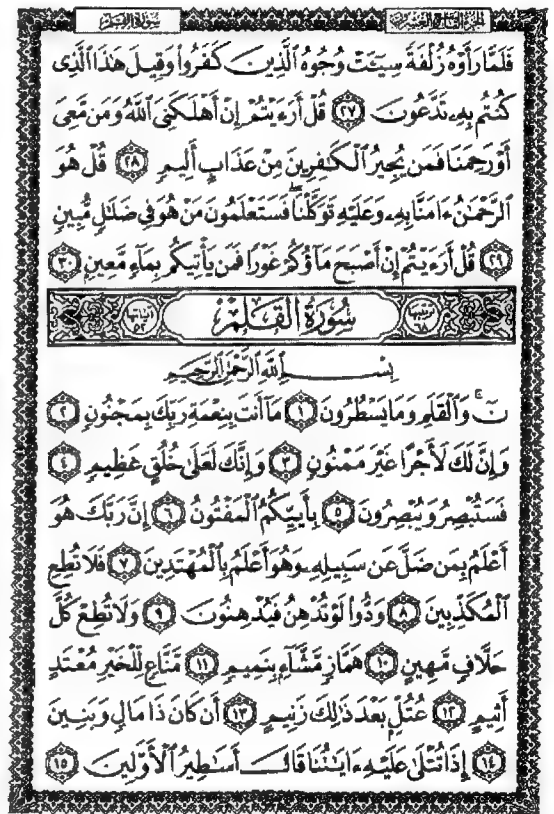 سورة القلم الجزء التاسع والعشرون
فَلَمَّا رَأَوْهُ زُلْفَةً سِيٓـَٔتْ وُجُوهُ ٱلَّذِينَ كَفَرُوا۟ وَقِيلَ هَـٰذَا ٱلَّذِى
كُنتُم بِهِۦ تَدَّعُونَ ٢٧ قُلْ أَرَءَيْتُمْ إِنْ أَهْلَكَنِىَ ٱللَّهُ وَمَن مَّعِىَ
أَوْ رَحِمَنَا فَمَن يُجِيرُ ٱلْكَـٰفِرِينَ مِنْ عَذَابٍ أَلِيمٍ ٢٨ قُلْ هُوَ
ٱلرَّحْمَـٰنُ ءَامَنَّا بِهِۦ وَعَلَيْهِ تَوَكَّلْنَا ۖ فَسَتَعْلَمُونَ مَنْ هُوَ فِى ضَلَـٰلٍ مُّبِينٍ
٢٩ قُلْ أَرَءَيْتُمْ إِنْ أَصْبَحَ مَآؤُكُمْ غَوْرًا فَمَن يَأْتِيكُم بِمَآءٍ مَّعِينٍۭ ٣٠
ترتيبها ٦٨ سُورَةُ ٱلْقَلَمِ آياتها ٥٢
بِسْمِ ٱللَّهِ ٱلرَّحْمَـٰنِ ٱلرَّحِيمِ
نٓ ۚ وَٱلْقَلَمِ وَمَا يَسْطُرُونَ ١ مَآ أَنتَ بِنِعْمَةِ رَبِّكَ بِمَجْنُونٍ ٢
وَإِنَّ لَكَ لَأَجْرًا غَيْرَ مَمْنُونٍ ٣ وَإِنَّكَ لَعَلَىٰ خُلُقٍ عَظِيمٍ ٤
فَسَتُبْصِرُ وَيُبْصِرُونَ ٥ بِأَييِّكُمُ ٱلْمَفْتُونُ ٦ إِنَّ رَبَّكَ هُوَ
أَعْلَمُ بِمَن ضَلَّ عَن سَبِيلِهِۦ وَهُوَ أَعْلَمُ بِٱلْمُهْتَدِينَ ٧ فَلَا تُطِعِ
ٱلْمُكَذِّبِينَ ٨ وَدُّوا۟ لَوْ تُدْهِنُ فَيُدْهِنُونَ ٩ وَلَا تُطِعْ كُلَّ
حَلَّافٍ مَّهِينٍ ١٠ هَمَّازٍ مَّشَّآءٍۭ بِنَمِيمٍ ١١ مَّنَّاعٍ لِّلْخَيْرِ مُعْتَدٍ
أَثِيمٍ ١٢ عُتُلٍّۭ بَعْدَ ذَٰلِكَ زَنِيمٍ ١٣ أَن كَانَ ذَا مَالٍ وَبَنِينَ
١٤ إِذَا تُتْلَىٰ عَلَيْهِ ءَايَـٰتُنَا قَالَ أَسَـٰطِيرُ ٱلْأَوَّلِينَ ١٥